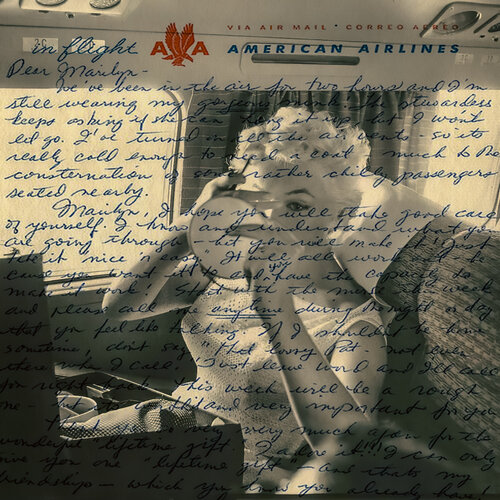 VIA AIR MAIL · CORREO AEREO
in flight AA AMERICAN AIRLINES
Dear Marilyn -
We've been in the air for two hours and I'm
still wearing my gorgeous mink. The stewardess
keeps asking if she can hang it up - but I won't
let go. I've turned on all the air vents - so its
really cold enough to need a coat - much to the
consternation of some rather chilly passengers
seated nearby.
Marilyn, I hope you will take good care
of yourself. I know and understand what you
are going through - but you will make it! Just
take it nice 'n easy. It will all work out be
cause you want it to and you have the capacity to
make it work! the week
and please call me anytime during the night or day
that you feel like talking. If I shouldn't be home
sometime, don't say "that lousy Pat - not ever
there when I call." Just leave word and I'll call
you right back. This week will be a rough
one - but and very important for you
very much upon for the
wonderful "lifetime gift" I adore it!! I can only
give you one "lifetime gift" - and thats my
friendship - which you know you already have